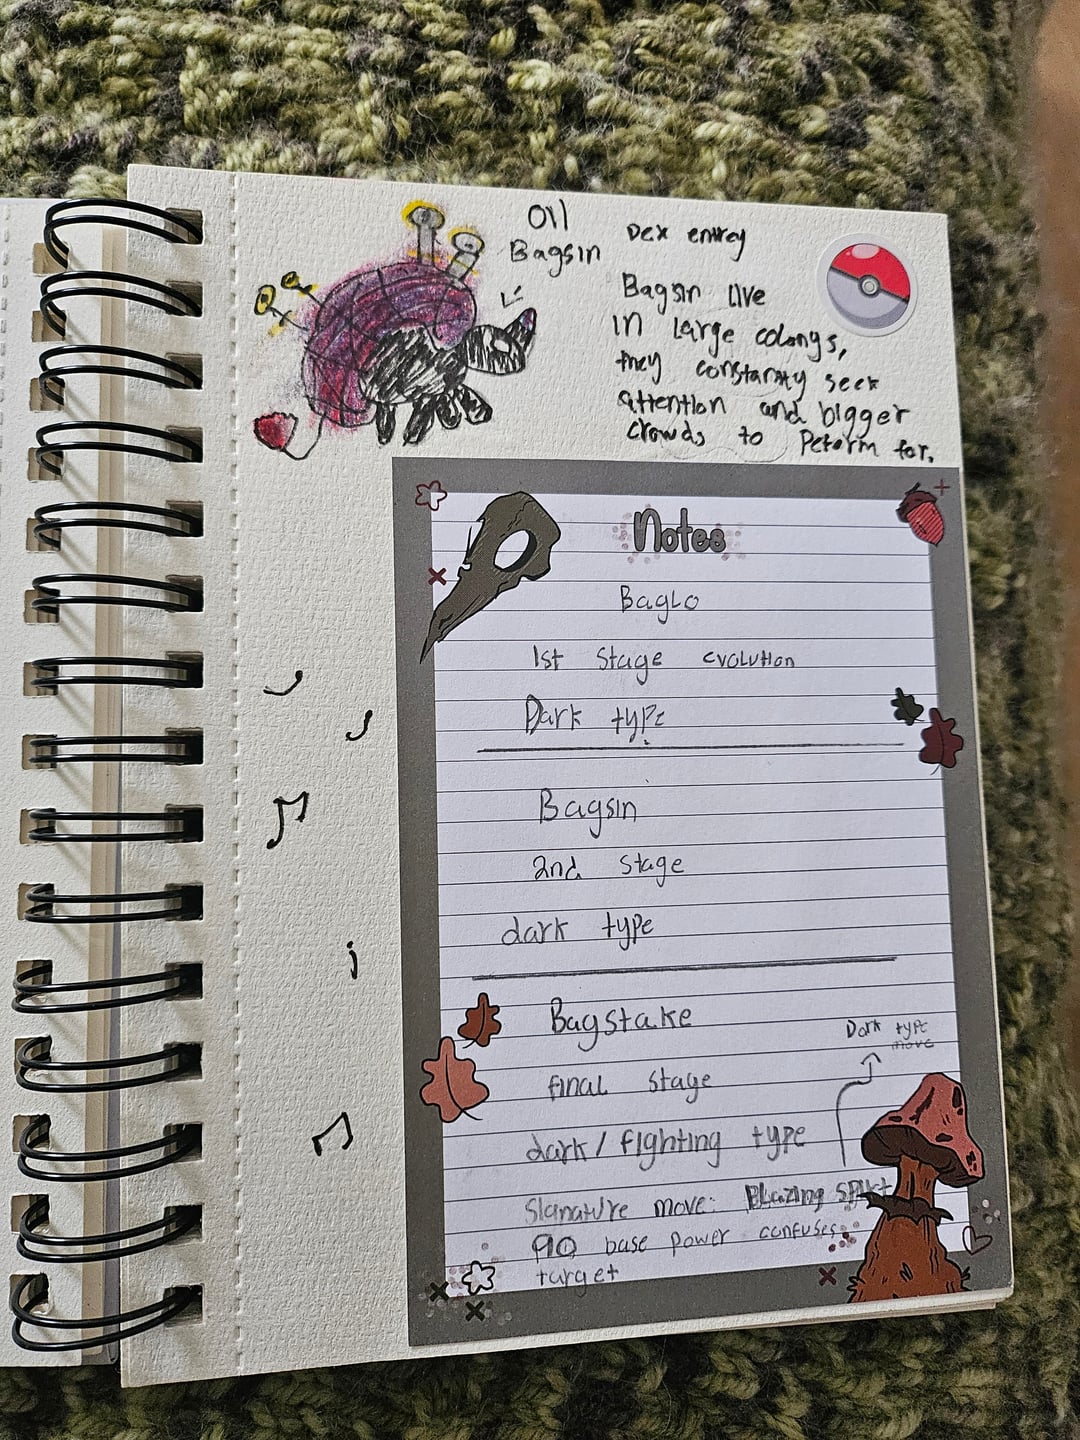 011
Bagsin
Dex entrey
Bagsin live
in large colonys,
they constantly seek
attention and bigger
crowds to Peform for.
Notes
Baglo
1st Stage evolution
Dark type
Bagsin
2nd stage
dark type
Bagstake
final stage
dark/fighting type
Dark type
move
Signature move: Blazing
90 base power confuses
target